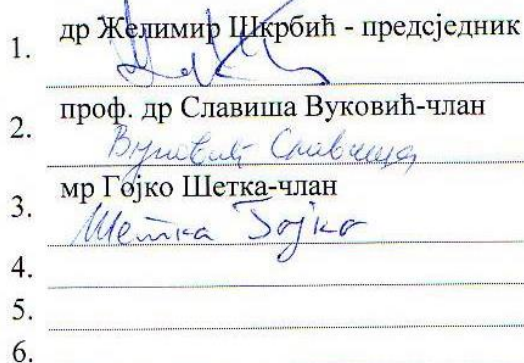 1. др Желимир Шкрбић - предсједник
2. проф. др Славиша Вуковић-члан
Вуковић Славиша
3. мр Гојко Шетка-члан
Шетка Гојко
4.
5.
6.